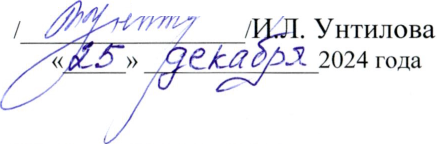 / /И.Л. Унтилова
«25» декабря 2024 года